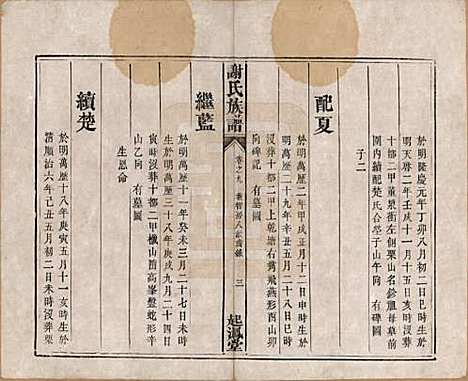 於明隆慶元年丁卯八月初二日巳時生於
明天啓二年壬戌十一月十五日亥時沒葬
十都二甲董泉衝左側栗山名餘風母墓前
圍內續配楚氏合塋子山午向 有碑圖
子二
配夏
於明萬歷二年甲戌正月十二日申時生於
明萬歷二十九年辛丑五月二十八日巳時
沒葬十都二甲上乾塘右黃飛燕形酉山卯
向碑記 有墓圖
謝氏族譜
卷之九
三
起鳳堂
繼藍
於明萬歷十一年癸未三月二十七日未時
生於明萬歷三十八年庚戌九月二十四日
寅時沒葬十都二甲山莭高峯盤蛇形辛
山乙向 有墓圖
生恩命
續楚
於明萬歷十八年庚寅五月十一亥時生於
清順治六年己丑五月初二日未時沒葬栗